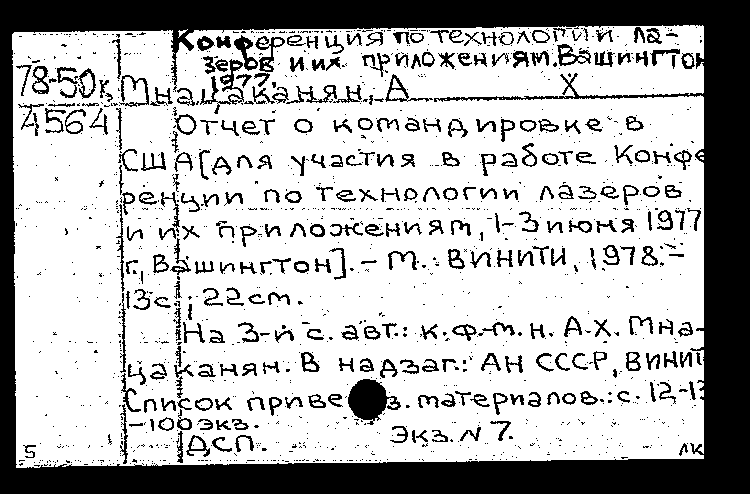 Конференция по технологии ла-
зеров и их приложениям. Вашингтон
1977.
78-50г, Мнацаканян, А Х
4564 Отчет о командировке в
США [для участия в работе Конфе
ренции по технологии лазеров
и их приложениям, 1-3 июня 1977
г., Вашингтон]. - М.: ВИНИТИ, 1978. -
13с.; 22см.
На 3-й с. авт.: к.ф.-м.н. А.Х. Мна-
цаканян. В надзаг.: АН СССР, ВИНИТ
Список приве з. материалов.: с. 12-13
-100экз.
ДСП. Экз. N 7.
5 лк